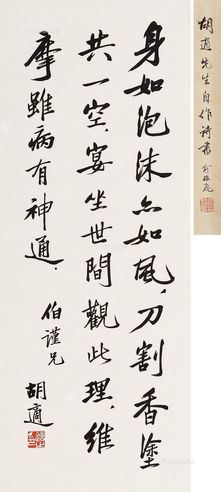 胡適先生自作詩書
身如泡沫亦如風，刀割香塗
共一空，宴坐世間觀此理，維
摩雖病有神通，
伯謹兄
胡適